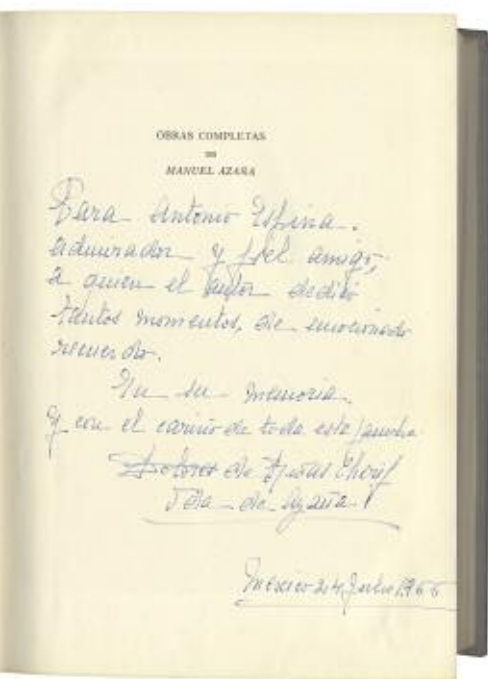 OBRAS COMPLETAS
DE
MANUEL AZAÑA
Para Antonio Espina.
admirador y fiel amigo,
a quien el autor dedicó
tantos momentos, de emocionado
recuerdo.
En su memoria.
Y con el cariño de toda esta familia
Dolores de Rivas Cherif
Vda de Azaña
Mexico 24 Julio 1966